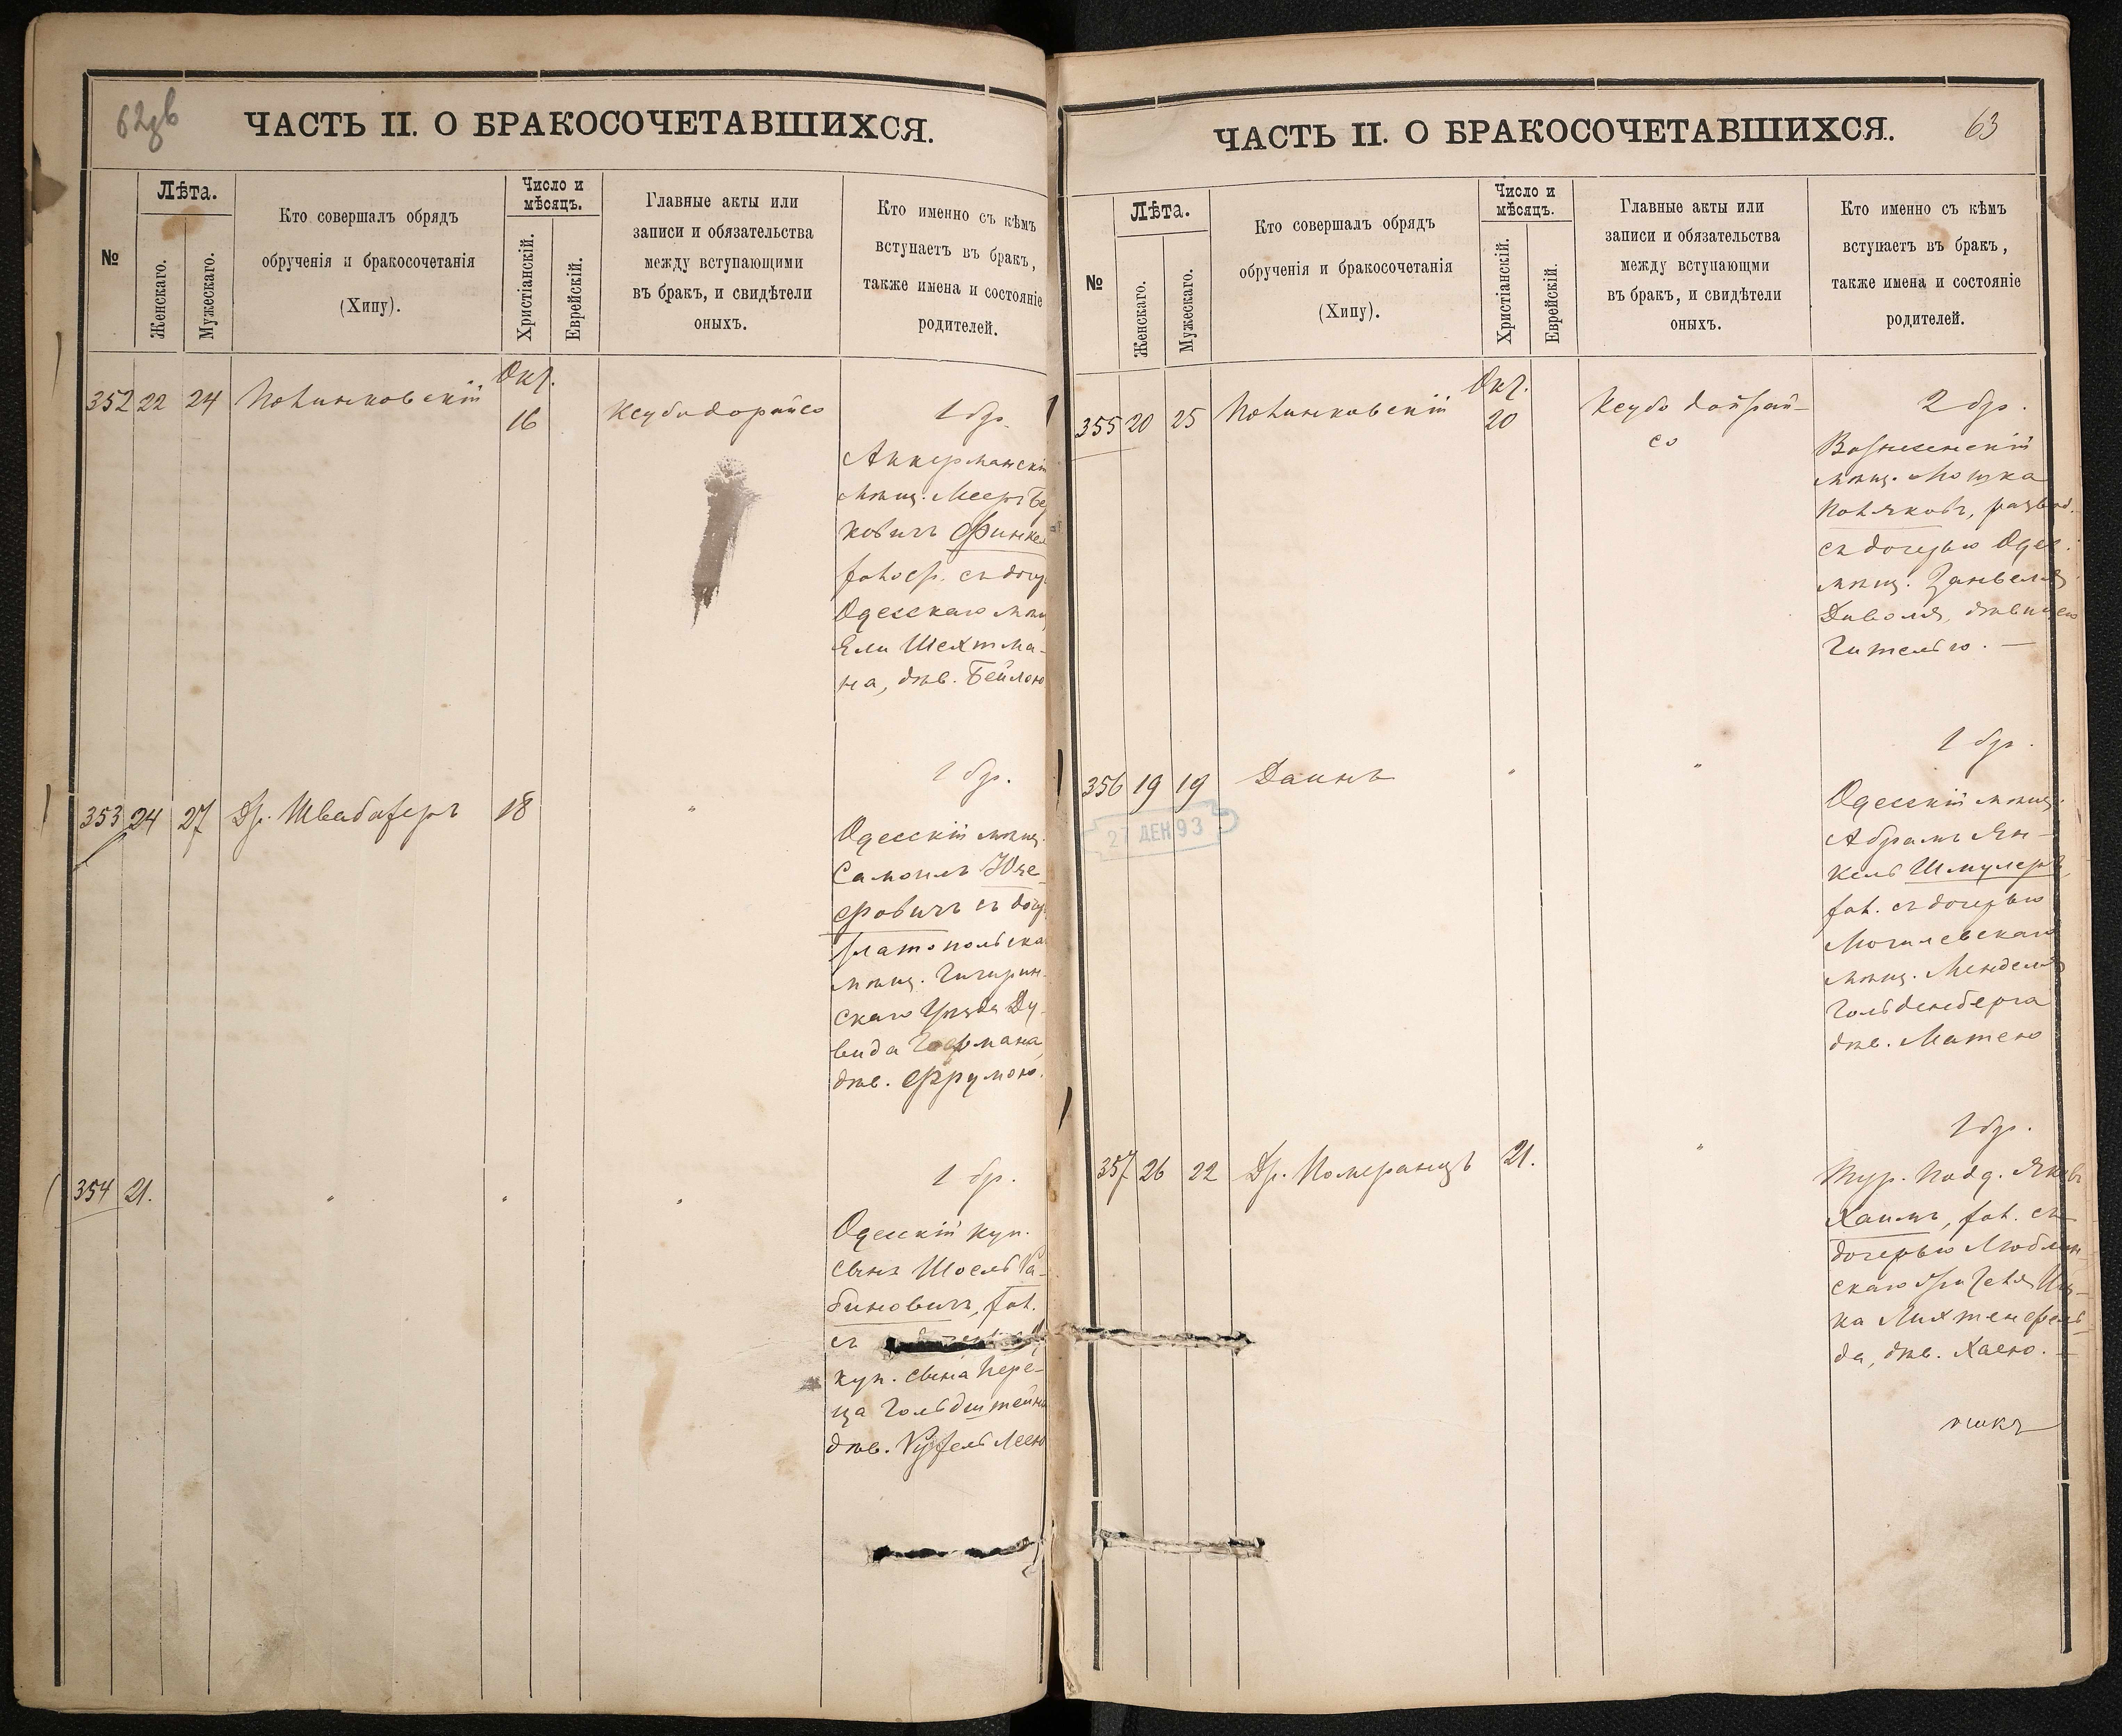 62 зв
ЧАСТЬ II. О БРАКОСОЧЕТАВШИХСЯ.
№
Лѣта.
Женскаго.
Мужескаго.
Кто совершалъ обрядъ
обрученія и бракосочетанія
(Хипу).
Число и
мѣсяцъ.
Христіанскій.
Еврейскій.
Главные акты или
записи и обязательства
между вступающими
въ бракъ, и свидѣтели
оныхъ.
Кто именно съ кѣмъ
вступаетъ въ бракъ,
также имена и состояніе
родителей.
352 22 24 Полинковскій Окт.
16
1 бр.
Аккерманскій
мѣщ. Мееръ Бер
ковичъ Финкел
холост. съ доч
Одесскаго мѣщ
Ели Шехтма-
на, дѣв. Бейлою
353 24 27 Др. Швабахеръ 18 "
1 бр.
Одесскій мѣщ.
Самоилъ Юзе-
фовичъ съ доч
Златопольска
мѣщ. Чигирин-
скаго уѣзда Ду-
вида Гофмана,
дѣв. Фрумою.
354 21. " " "
1 бр.
Одесскій куп.
сынъ Шоель Ра-
биновичъ, хол.
съ
куп. сына Пере-
ца Гольдштейна
дѣв. Рухель Леею
63
ЧАСТЬ II. О БРАКОСОЧЕТАВШИХСЯ.
№
Лѣта.
Женскаго.
Мужескаго.
Кто совершалъ обрядъ
обрученія и бракосочетанія
(Хипу).
Число и
мѣсяцъ.
Христіанскій.
Еврейскій.
Главные акты или
записи и обязательства
между вступающми
въ бракъ, и свидѣтели
оныхъ.
Кто именно съ кѣмъ
вступаетъ въ бракъ,
также имена и состояніе
родителей.
355 20 25 Полинковскій Окт.
20
2 бр.
Вознесенскій
мѣщ. Мошка
Поляковъ, развод.
съ дочерью Одес.
мѣщ. Занвеля
Диволя, дѣвицею
Гителью. —
356 19 19 Даинъ " "
27 ДЕН 93
1 бр.
Одесскій мѣщ.
Абрамъ Ян-
кель Шмулеръ,
хол. съ дочерью
Могилевскаго
мѣщ. Менделя
Гольденберга
дѣв. Матею
357 26 22 Др. Померанцъ 21. "
1 бр.
Тур. Подд. Яковъ
Хаимъ, хол. съ
дочерью Люблин-
скаго жителя Иц-
ка Лихтенфель-
да, дѣв. Хаею. —